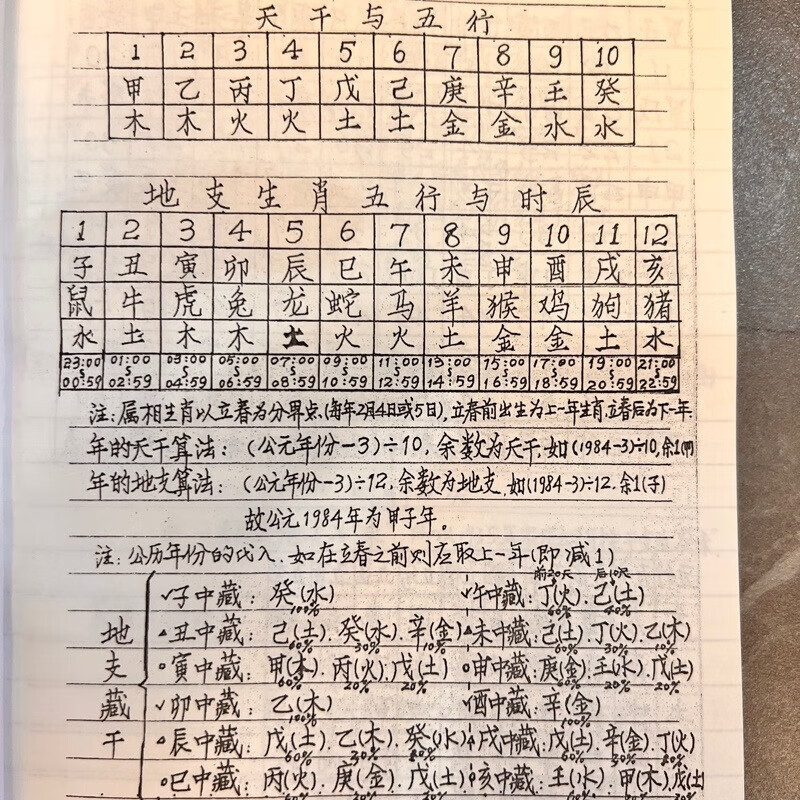 天干与五行
1 2 3 4 5 6 7 8 9 10
甲 乙 丙 丁 戊 己 庚 辛 壬 癸
木 木 火 火 土 土 金 金 水 水
地支生肖五行与时辰
1 2 3 4 5 6 7 8 9 10 11 12
子 丑 寅 卯 辰 巳 午 未 申 酉 戌 亥
鼠 牛 虎 兔 龙 蛇 马 羊 猴 鸡 狗 猪
水 土 木 木 土 火 火 土 金 金 土 水
23:00 01:00 03:00 05:00 07:00 09:00 11:00 13:00 15:00 17:00 19:00 21:00
00:59 02:59 04:59 06:59 08:59 10:59 12:59 14:59 16:59 18:59 20:59 22:59
注:属相生肖以立春为分界点.(每年2月4日或5日),立春前出生为上一年生肖.立春后为下一年.
年的天干算法:(公元年份-3)÷10,余数为天干.如(1984-3)÷10,余1(甲)
年的地支算法:(公元年份-3)÷12,余数为地支.如(1984-3)÷12.余1(子)
故公元1984年为甲子年。
注:公历年份的代入.如在立春之前则应取上一年(即减1)
前20天 后10天
子中藏:癸(水) 午中藏:丁(火).己(土)
100% 60% 40%
丑中藏:己(土).癸(水).辛(金) 未中藏:己(土).丁(火).乙(木)
60% 30% 10% 60% 30% 10%
寅中藏:甲(木).丙(火).戊(土) 申中藏:庚(金).壬(水).戊(土)
60% 20% 20% 60% 20% 20%
卯中藏:乙(木) 酉中藏:辛(金)
100% 100%
辰中藏:戊(土).乙(木).癸(水) 戌中藏:戊(土).辛(金).丁(火)
60% 60% 30%
巳中藏:丙(火).庚(金).戊(土) 亥中藏:壬(水).甲(木).戊(土)
地支藏干